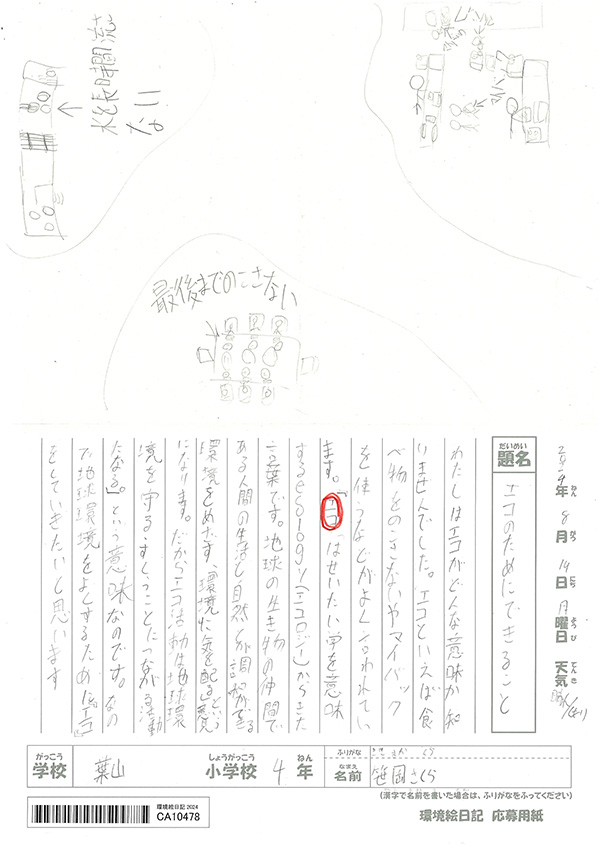 水を長時間流さ
ない
マイバッグ
最後までのこさない
2024年 8月 14日 月曜日 天気
ねん
がつ
にち
ようび
てんき
だいめい
題名
エコのためにできること
わたしはエコがどんな意味か知
いませんでした。エコといえば食
べ物をのこさないやマイバック
を使うなどがよく言われてい
ます。「エコ」はせいたい学を意味
するecology(エコロジー)からきた
言葉です。地球の生き物の仲間で
ある人間の生活と自然とが調和できる
環境をめざす、環境に気を配るという意
になります。だからエコ活動は地球環
境を守る・すくうことにつながる活動
たなる」という意味なのです。なの
で、地球環境をよくするため「エコ」
をしていきたいと思います
がっこう
学校
葉山
しょうがっこう
小学校
4
ねん
年
ふりがな
なまえ
名前
笹岡さくら
(漢字で名前を書いた場合は、ふりがなをふってください)
環境絵日記 2024
CA10478
環境絵日記 応募用紙